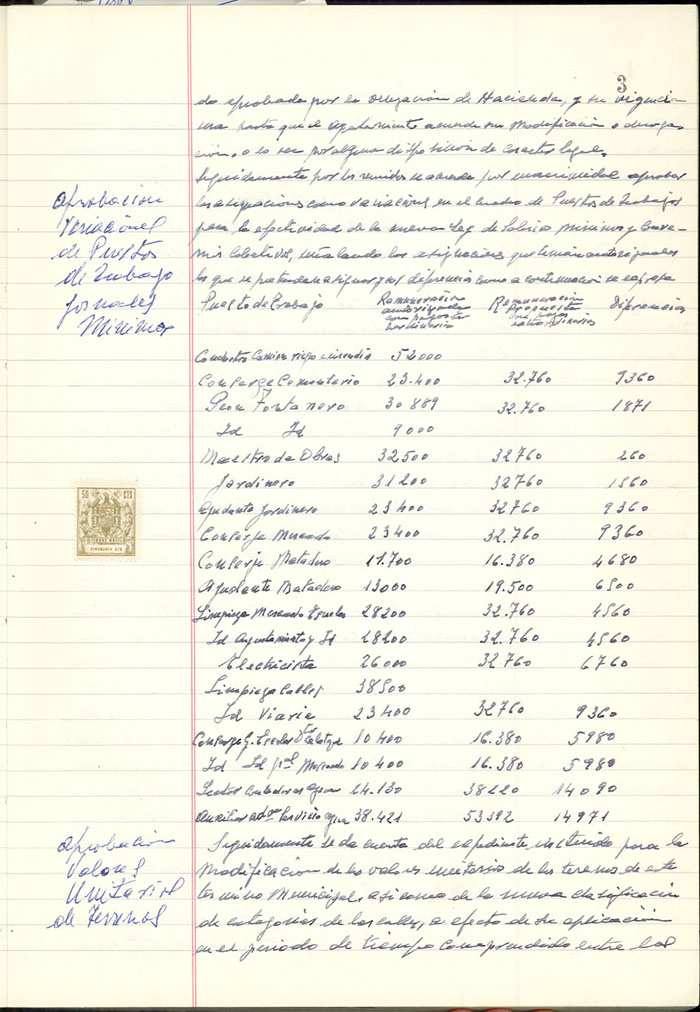 3
do aprobada por la Delegación de Hacienda, y su vigencia
sera hasta que el Ayuntamiento acuerde su modificación o deroga-
ción, o lo sea por alguna disposición de caracter legal.
Seguidamente por los reunidos se acuerda por unanimidad aprobar
las asignaciones como variaciones en el cuadro de Puestos de Trabajo
para la efectividad de la nueva Ley de Salarios minimos y Conve-
nios Colectivos, señalando las asignaciones que tenian autorizadas
las que se pretenden asignar y sus diferencias como a continuación se expresa
Aprobacion
Variaciónes
de Puestos
de Trabajo
Jornales
Minimos
Puesto de trabajo Remuneracion autorizada Remuneración Propuesta diferencias
Conductor Camion riego e incendio 52000
Conserge Cementerio 23.400 32.760 9360
Peon Fontanero 30889 32.760 1871
Id Id 9000
Maestro de Obras 32500 32760 260
Jardinero 31200 32760 1560
Ayudante Jardinero 23400 32.760 9360
Conserje Mercado 23400 32.760 9360
Conserje Matadero 11.700 16.380 4680
Ayudante Matadero 13000 19.500 6500
Limpieza Mercado Escuelas 28200 32.760 4560
Id Ayuntamiento y Id 28200 32.760 4560
Electricista 26000 32.760 6760
Limpieza Calles 38500
Id Viaria 23400 32760 9360
Conserge G. Escolar 10400 16.380 5980
Id Id 10400 16.380 5980
Lector Contadores agua 24.130 38220 14090
Auxiliar advo Servicio agua 38.421 53392 14971
50 CTS
Aprobacion
Valores
Unitarios
de Terrenos
Seguidamente se da cuenta del expediente, instruido para la
Modificación de los valores unitarios de los terrenos de este
termino Municipal, asi como de la nueva clasificación
de categorias de las calles, a efecto de su aplicación
en el periodo de tiempo comprendido entre los